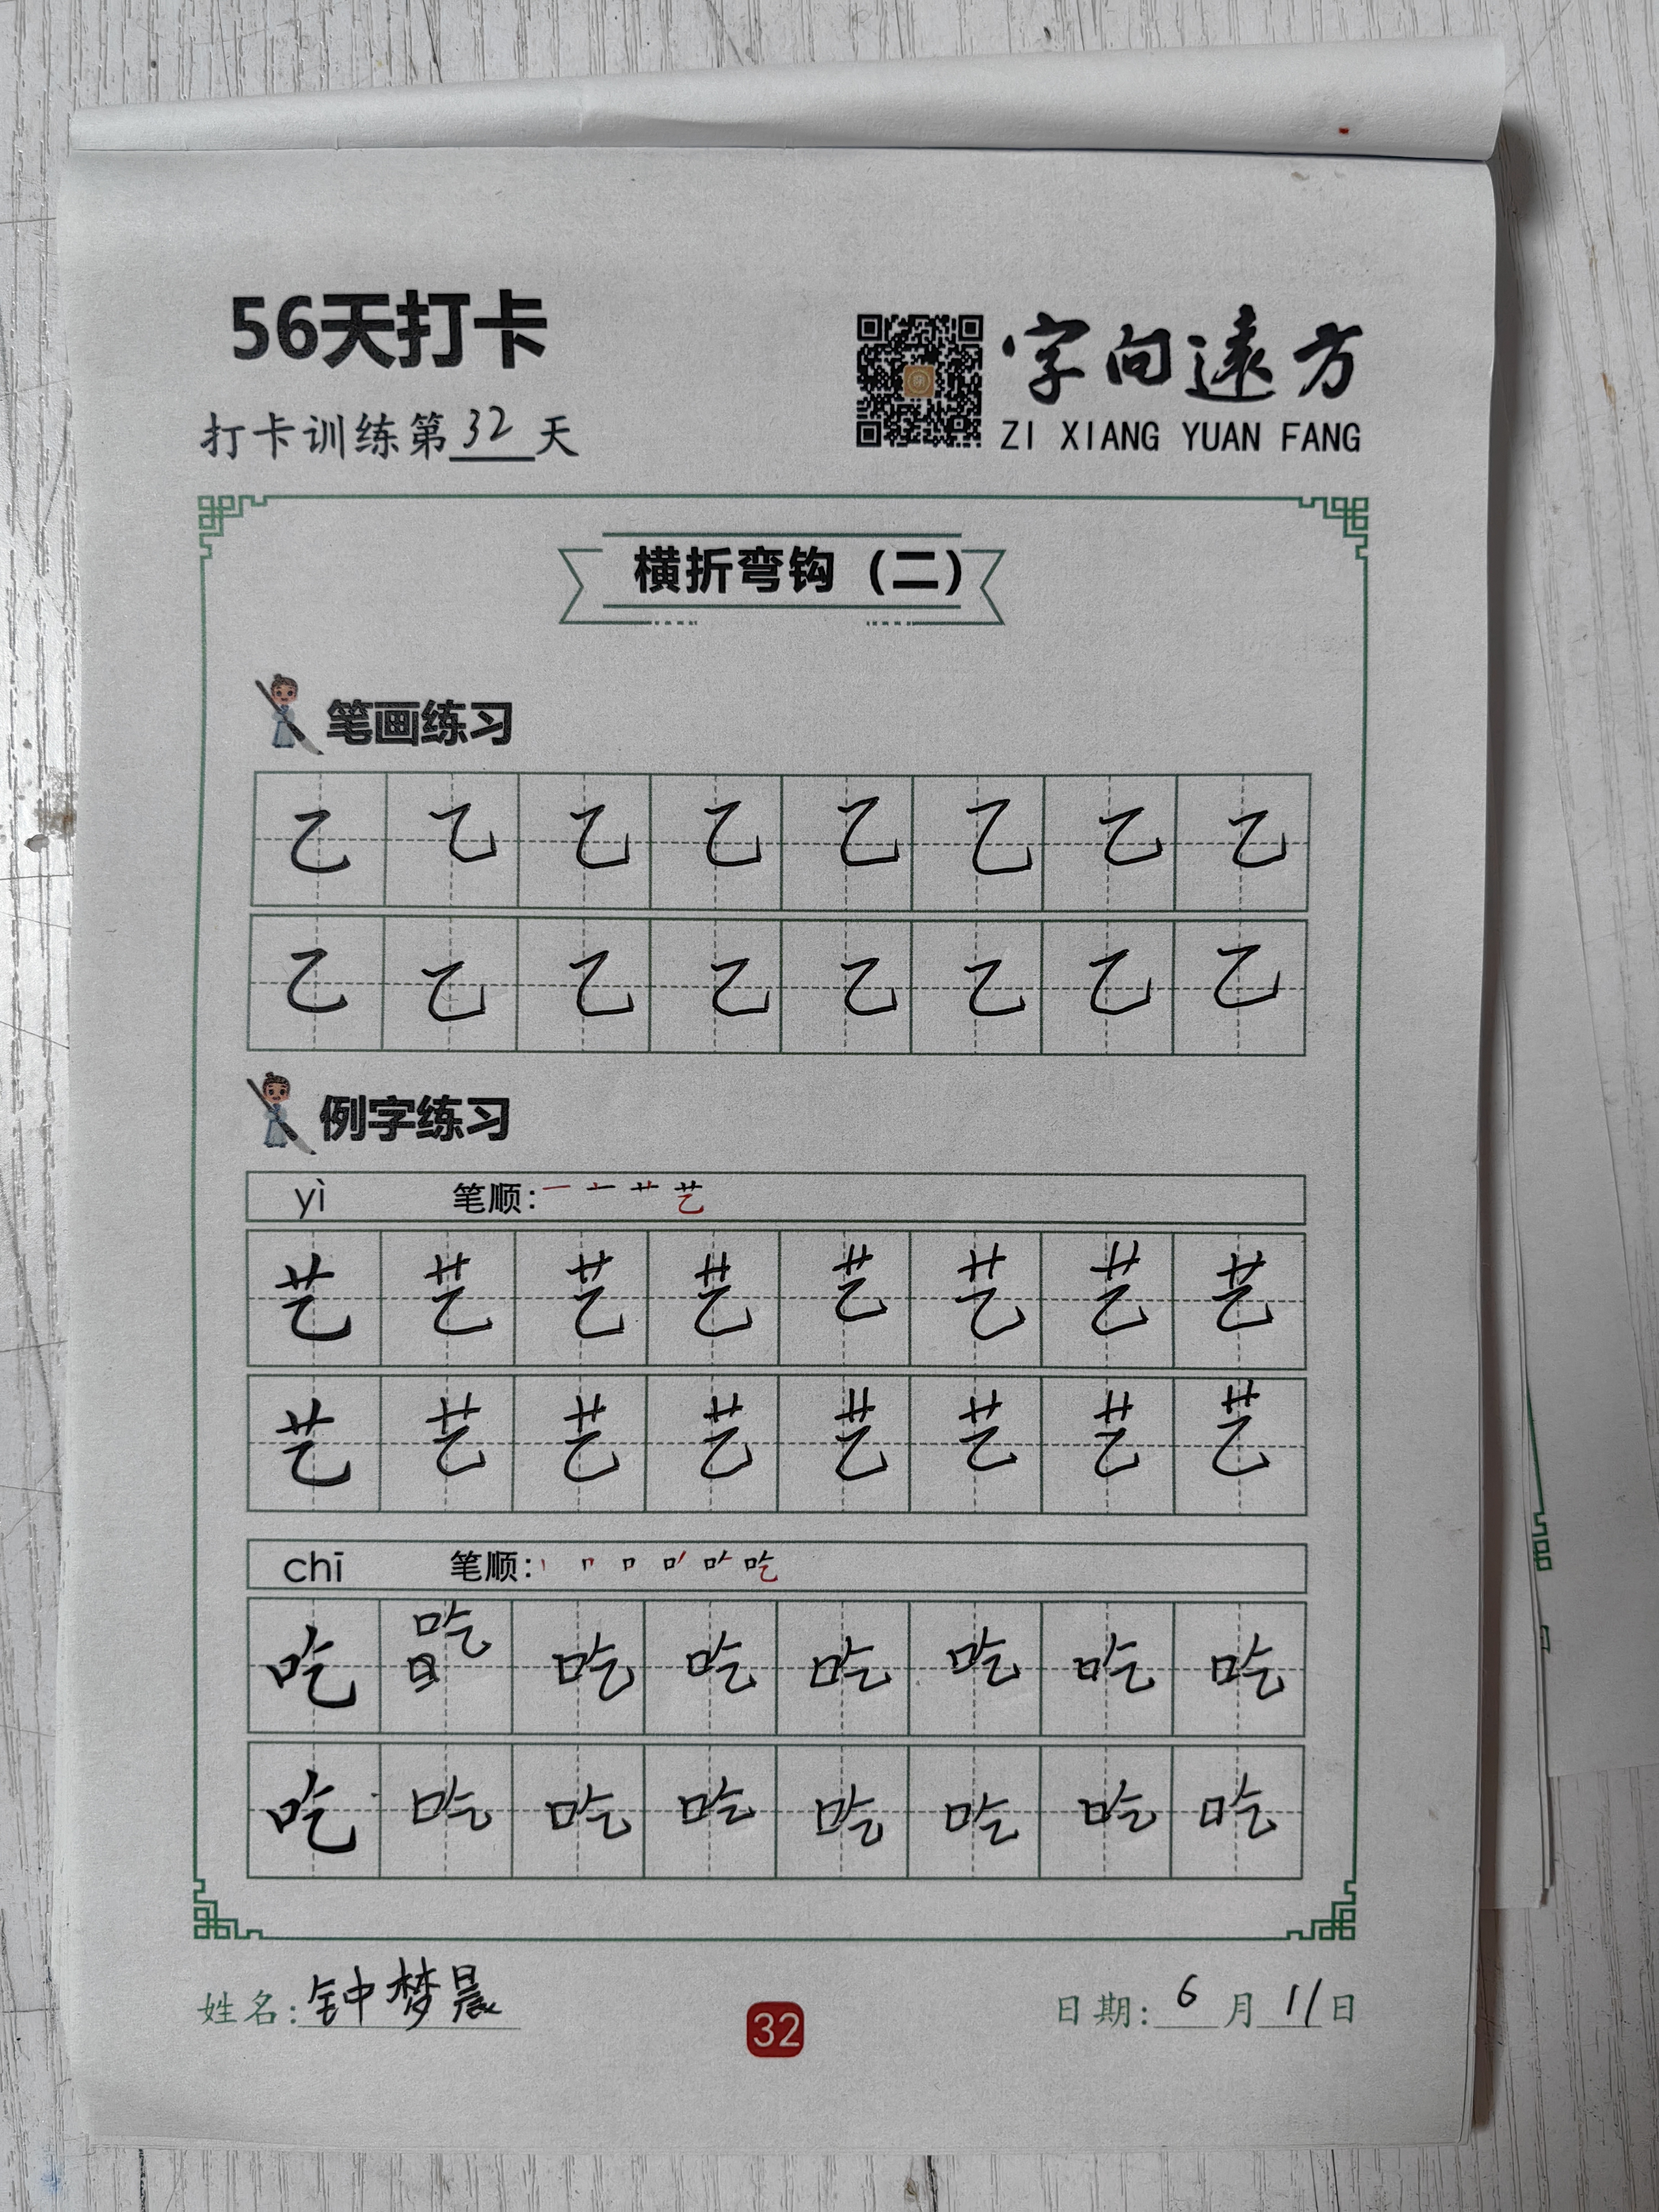 56天打卡
字向遠方
打卡训练第32天
ZI XIANG YUAN FANG
横折弯钩（二）
笔画练习
乙乙乙乙乙乙乙乙
乙乙乙乙乙乙乙乙
例字练习
yì 笔顺：一 艹 艺
艺艺艺艺艺艺艺艺
艺艺艺艺艺艺艺艺
chī 笔顺：丨 冂 口 吃
吃吃吃吃吃吃吃吃
吃吃吃吃吃吃吃吃
姓名：钟梦晨
32
日期：6月11日